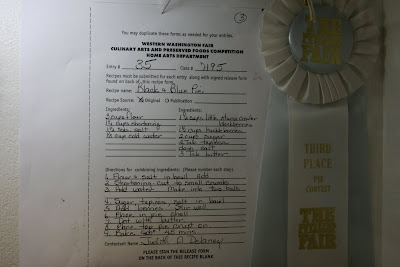 3
You may duplicate these forms as needed for your entries.
WESTERN WASHINGTON FAIR
CULINARY ARTS AND PRESERVED FOODS COMPETITION
HOME ARTS DEPARTMENT
Entry # 35 Class #
Recipes must be submitted for each entry along with signed release form
found on back of this recipe form.
Recipe name: Black & Blue Pie
Recipe Source: Original Publication
Ingredients: Ingredients:
3 cups flour
1½ cups shortening blackberries
salt 1½ cups huckleberries
cold water 2 cups sugar
2 tapioca
dash salt
butter
Directions for combining ingredients: (Please number each step)
1. Flour & salt in bowl Add
2. Shortening - Cut to small crumbs
3. Add water. Make into two balls
4. Sugar, tapioca salt in bowl
5. Add berries. Stir well
6. Place in pie shell
7. Dot with butter
8. Place top pie crust on
9. Bake
Contestant Name: Judith A Delaney
PLEASE SIGN THE RELEASE FORM
ON THE BACK OF THIS RECIPE BLANK
THE
FAIR
THIRD
PLACE
PIE
CONTEST
THE
FAIR